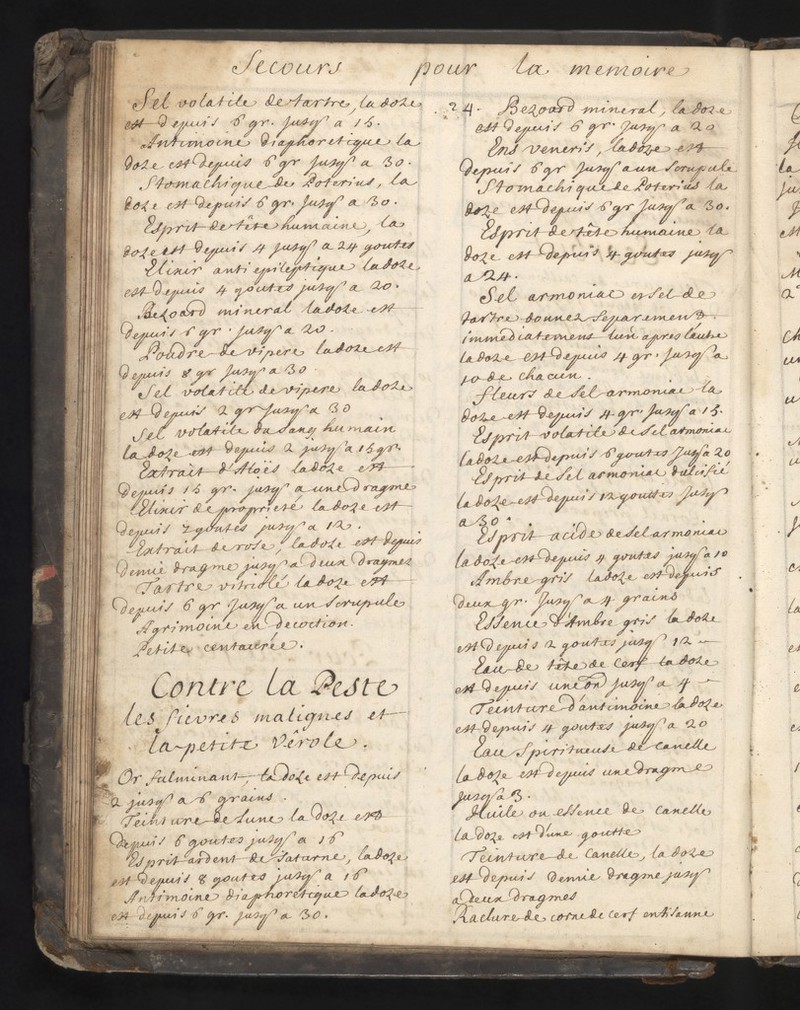 Secours pour la memoire
Sel volatile de tartre, la doze
est depuis 6 gr. jusq' a 15.
Antimoine diaphoretique la
doze est depuis 6 gr jusq' a 30.
Stomachique de Poterius, la
doze est depuis 6 gr. jusq' a 30.
Esprit de tête humaine, la
doze est depuis 4 jusq' a 24 goutes
Elixir anti epileptique la doze
est depuis 4 goutes jusq' a 20.
Bezoard mineral la doze est
depuis 6 gr. jusq' a 20.
Poudre de vipere la doze est
depuis 8 gr jusq' a 30
Sel volatile de vipere la doze
est depuis 2 gr jusq' a 30
Sel volatile du sang humain
la doze est depuis 2 jusq' a 15 gr.
Extrait d'Aloës la doze est
depuis 15 gr. jusq' a une dragme
Elixir de proprieté la doze est
depuis 7 goutes jusq' a 12.
Extrait de rose, la doze est depuis
demie dragme jusq' a deux dragmes
Tartre vitriolé la doze est
depuis 6 gr jusq' a un scrupule
Agrimoine en decoction.
Petite centaurée.
Contre la Peste
les fievres malignes et
la petite Vérole.
Or fulminant, la doze est depuis
2 jusq' a 6 grains.
Teinture de Lune la doze est
depuis 6 goutes jusq' a 16
Esprit ardent de Saturne, la doze
est depuis 8 goutes jusq' a 16
Antimoine diaphoretique la doze
est depuis 6 gr. jusq' a 30.
24. Bezoard mineral, la doze
est depuis 6 gr. jusq' a 20
Ens veneris, la doze est
depuis 6 gr jusq' a un scrupule
Stomachique de Poterius la
doze est depuis 6 gr jusq' a 30.
Esprit de tête humaine la
doze est depuis 4 goutes jusq'
a 24.
Sel armoniac et sel de
tartre donnez separement &
immediatement l'un apres l'autre
la doze est depuis 4 gr. jusq' a
10 de chacun.
fleurs de sel armoniac la
doze est depuis 4 gr. jusq' a 15.
Esprit volatile de sel armoniac
la doze est depuis 6 goutes jusq' a 20
Esprit de sel armoniac dulcifié
la doze est depuis 12 gouttes jusq'
a 30.
Esprit acide de sel armoniac
la doze est depuis 4 goutes jusq' a 10
Ambre gris la doze est depuis
deux gr. jusq' a 4 grains
Essence d'Ambre gris la doze
est depuis 2 goutes jusq' 12
Eau de tête de cerf la doze
est depuis une on jusq' a 4
Teinture d'antimoine la doze
est depuis 4 goutes jusq' a 20
Eau spiritueuse de canelle
la doze est depuis une dragme
jusq' a 3.
Huile ou essence de canelle
la doze est d'une goutte
Teinture de canelle, la doze
est depuis demie dragme jusq'
a deux dragmes
Raclure de corne de cerf en tisanne